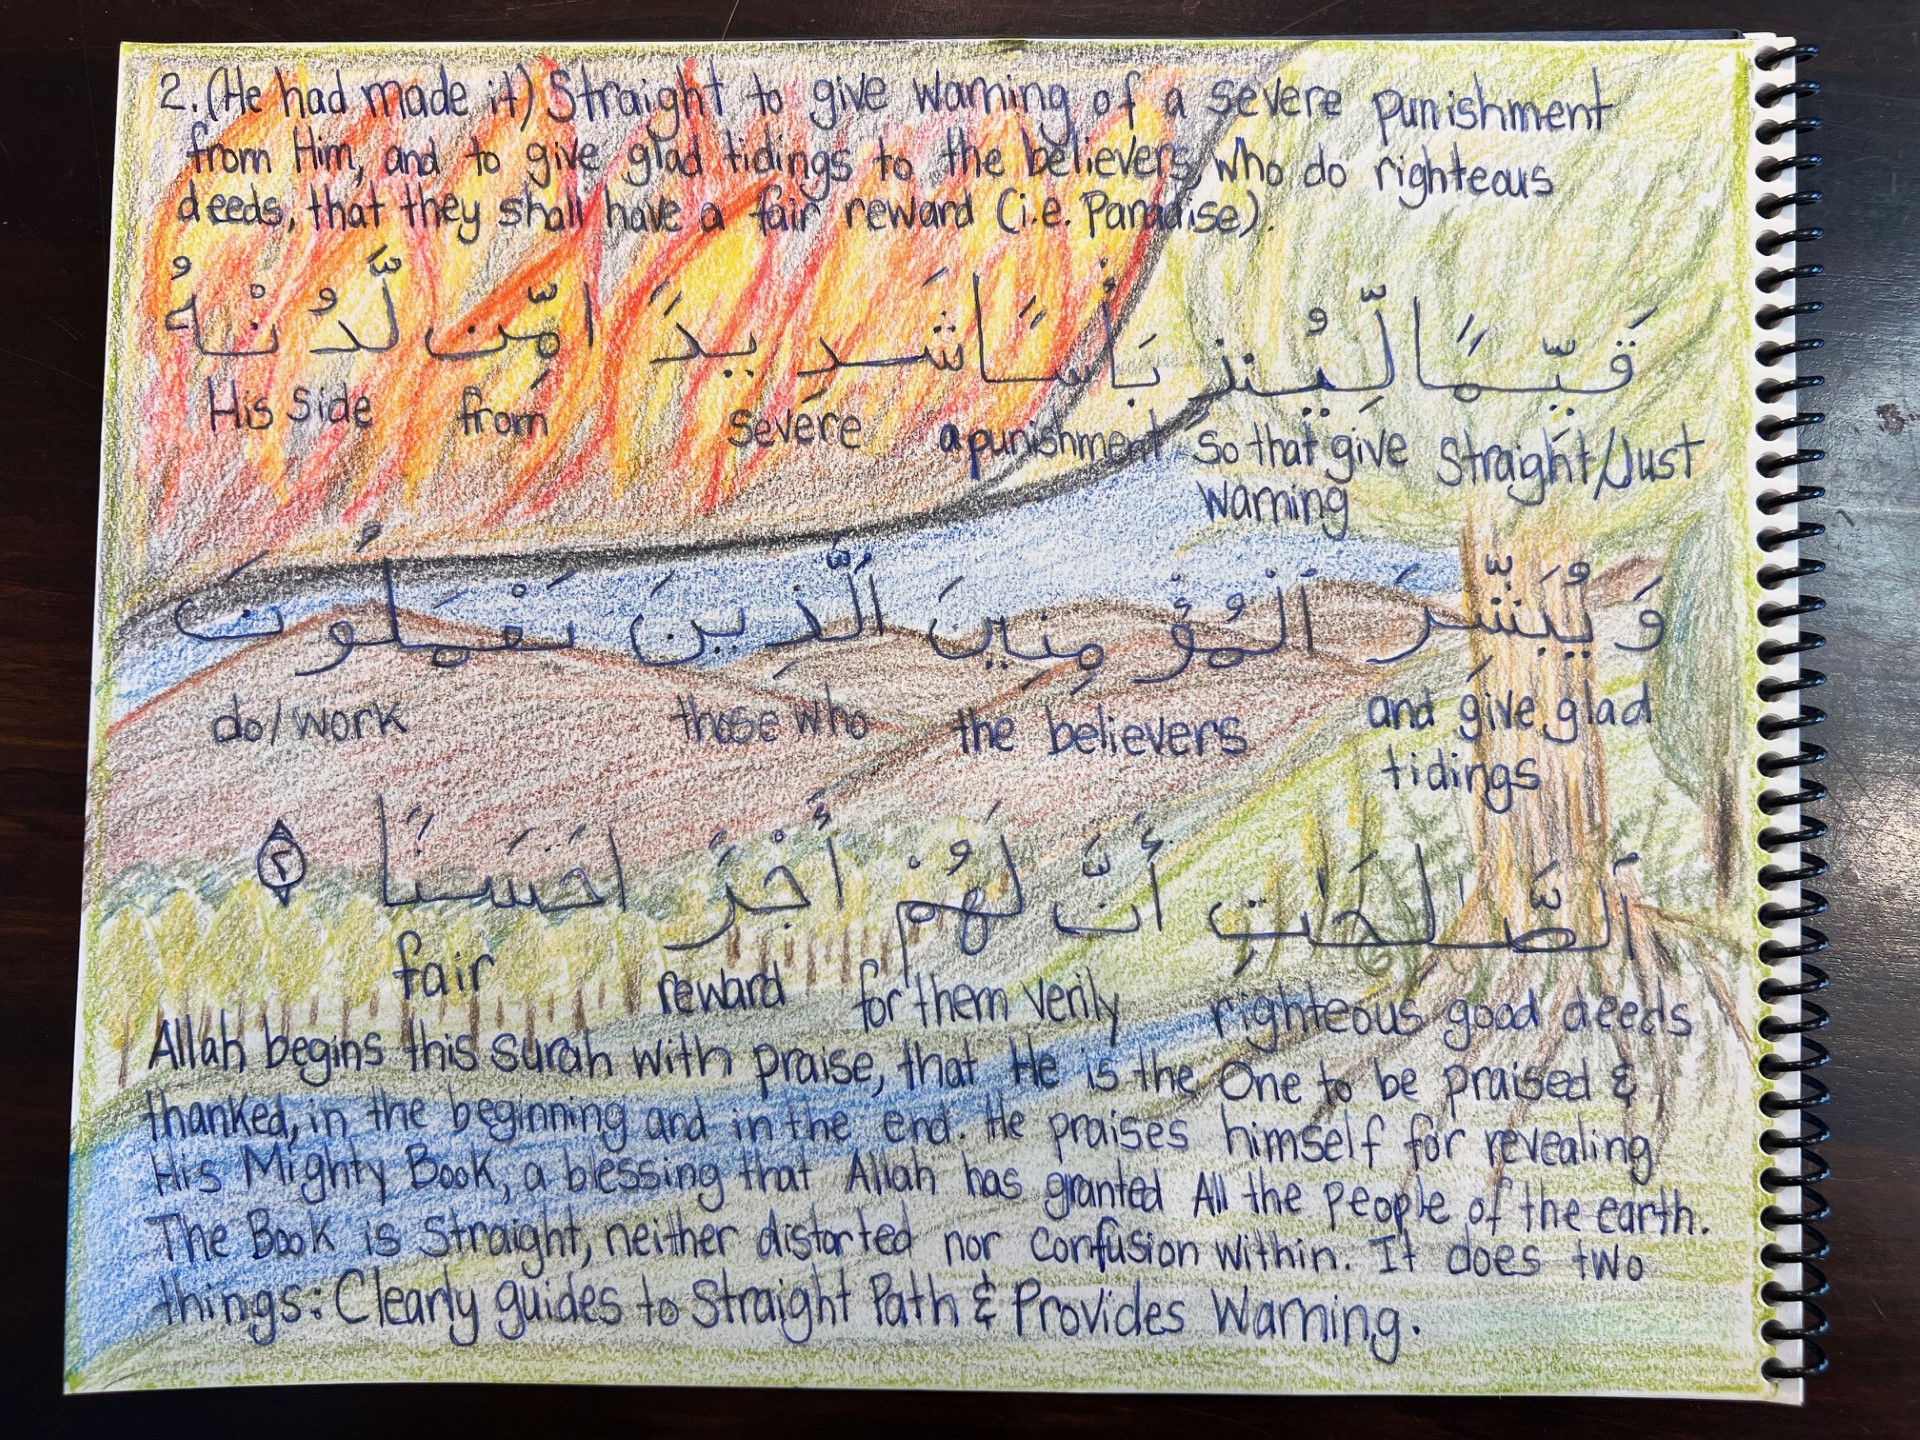 2. (He had made it) Straight to give warning of a severe punishment
from Him, and to give glad tidings to the believers, who do righteous
deeds, that they shall have a fair reward (i.e. Paradise).
قَيِّمًا لِّيُنذِ بَأْسًا شَدِيدً امِّن لَّدُنْهُ
Straight/Just so that give a punishment severe from His Side
warning
وَ يُبَشِّرَ ٱلْمُؤْمِنِينَ ٱلَّذِينَ نَعْمَلُونَ
and give glad the believers those who do/work
tidings
ٱلصَّـٰلِحَـٰتِ أَنَّ لَهُمْ أَجْرً احَسَنًا ٢
righteous good deeds verily for them reward fair
Allah begins this surah with praise, that He is the One to be praised &
thanked, in the beginning and in the end. He praises himself for revealing
His Mighty Book, a blessing that Allah has granted All the people of the earth.
The Book is Straight, neither distorted nor confusion within. It does two
things: Clearly guides to Straight Path & Provides Warning.